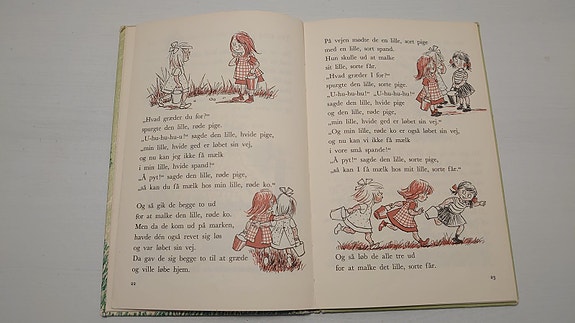 „Hvad græder du for?“
spurgte den lille, røde pige.
„U-hu-hu-hu-u!“ sagde den lille, hvide pige,
„min lille, hvide ged er løbet sin vej,
og nu kan jeg ikke få mælk
i min lille, hvide spand!“
„Å pyt!“ sagde den lille, røde pige,
„så kan du få mælk hos min lille, røde ko.“
Og så gik de begge to ud
for at malke den lille, røde ko.
Men da de kom ud på marken,
havde den også revet sig løs
og var løbet sin vej.
Da gav de sig begge to til at græde
og ville løbe hjem.
22
På vejen mødte de en lille, sort pige
med en lille, sort spand.
Hun skulle ud at malke
sit lille, sorte får.
„Hvad græder I for?“
spurgte den lille, sorte pige.
„U-hu-hu-hu!“ „U-hu-hu-hu!“
sagde den lille, hvide pige
og den lille, røde pige,
„min lille, hvide ged er løbet sin vej!“
„Og min lille, røde ko er også løbet sin vej,
og nu kan vi ikke få mælk
i vore små spande!“
„Å pyt!“ sagde den lille, sorte pige,
„så kan I få mælk hos mit lille, sorte får.“
Og så løb de alle tre ud
for at malke det lille, sorte får.
23